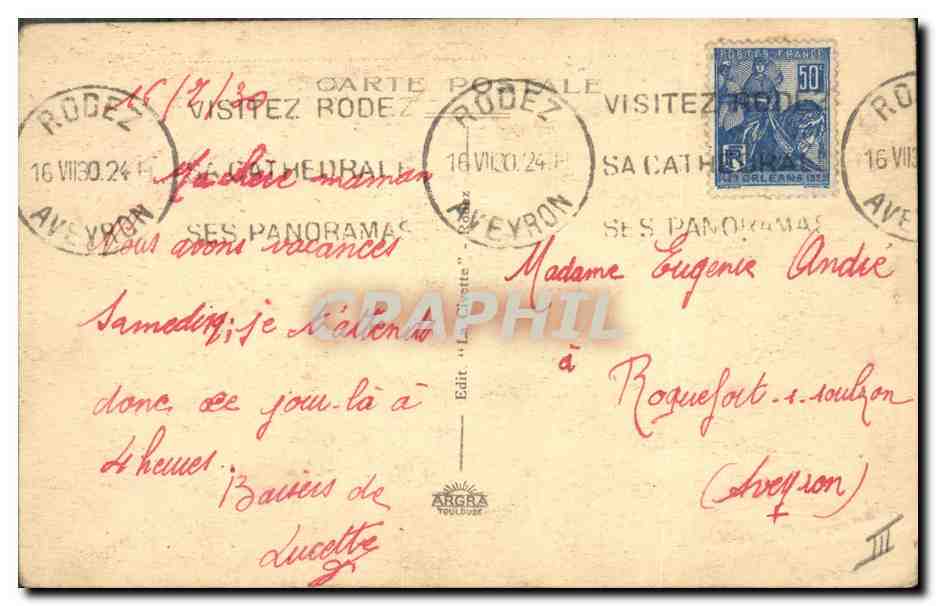 CARTE POSTALE
16/7/30
Ma chère maman
Nous avons vacances
Samedi 19; je t'attends
donc ce jour-là à
4 heures.
Baisers de
Lucette
RODEZ
16 VII 30 24 H
AVEYRON
VISITEZ RODEZ
SA CATHEDRALE
SES PANORAMAS
RODEZ
16 VII 30 24 H
AVEYRON
VISITEZ RODEZ
SA CATHEDRALE
SES PANORAMAS
RO
16 VII
AVEY
POSTES FRANCE
50c
ORLEANS
Edit "La Civette" - Rodez
ARGRA
TOULOUSE
Madame Eugenie André
à
Roquefort-s-soulzon
(Aveyron)
III
CRAPHIL